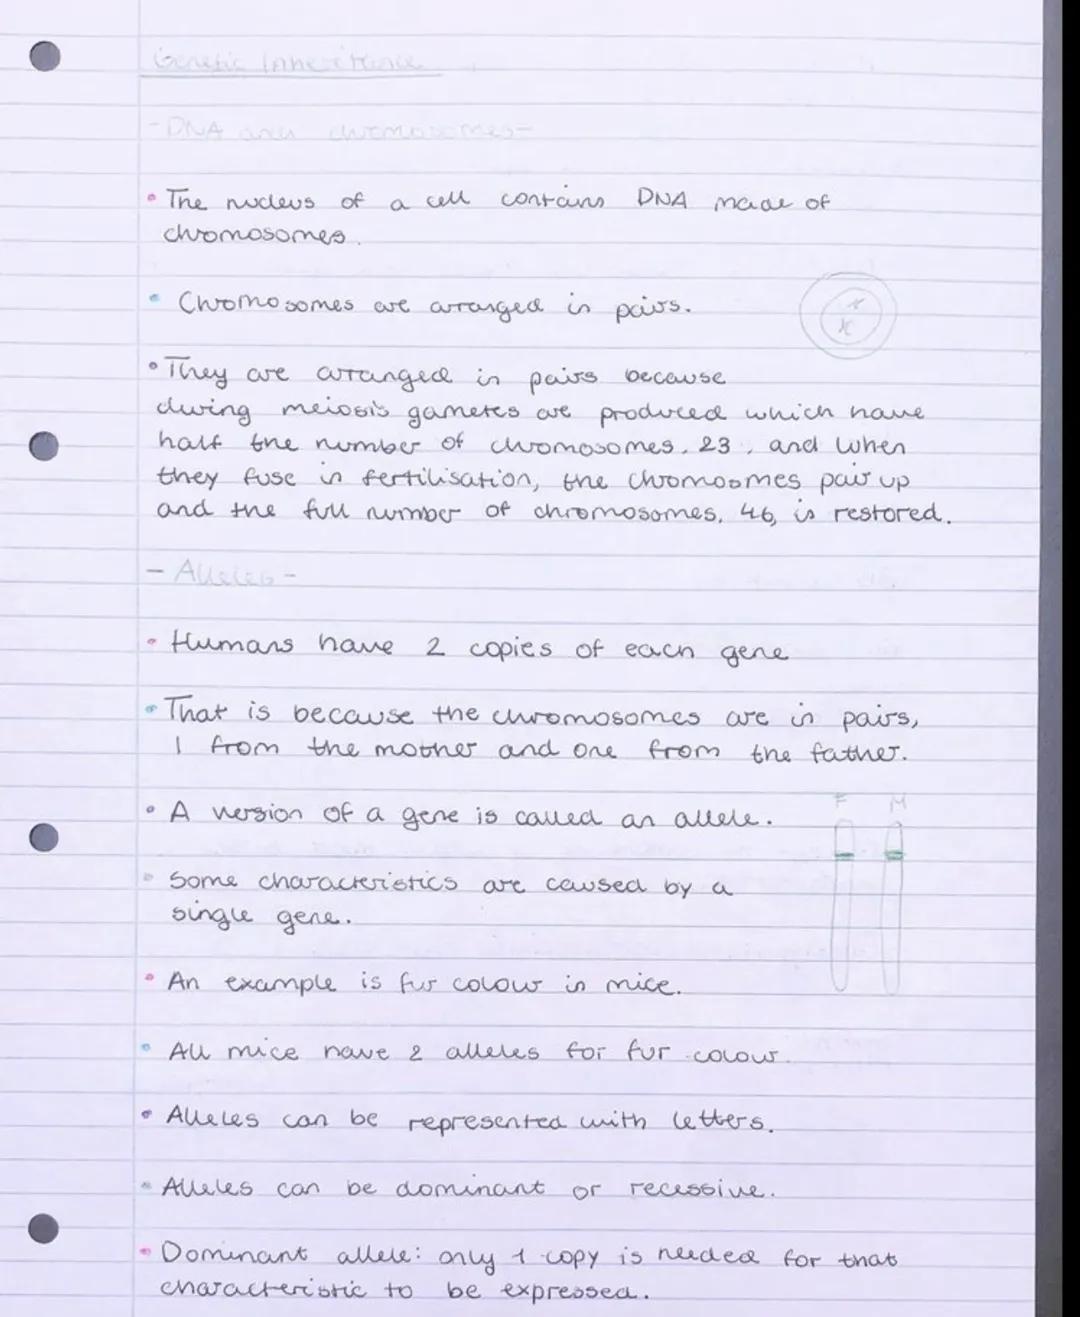 Genetic Inheritance
- DNA and chromosomes -
• The nucleus of a cell contains DNA made of
chromosomes.
• Chromosomes are arranged in pairs.
• They are arranged in pairs because
during meiosis gametes are produced which have
half the number of chromosomes, 23, and when
they fuse in fertilisation, the chromoomes pair up
and the full number of chromosomes, 46, is restored.
- Alleles -
• Humans have 2 copies of each gene
• That is because the chromosomes are in pairs,
1 from the mother and one from the father.
• A version of a gene is called an allele.
F M
• Some characteristics are caused by a
single gene.
• An example is fur colour in mice.
• All mice have 2 alleles for fur colour.
• Alleles can be represented with letters.
• Alleles can be dominant or recessive.
• Dominant allele: only 1 copy is needed for that
characteristic to be expressed.